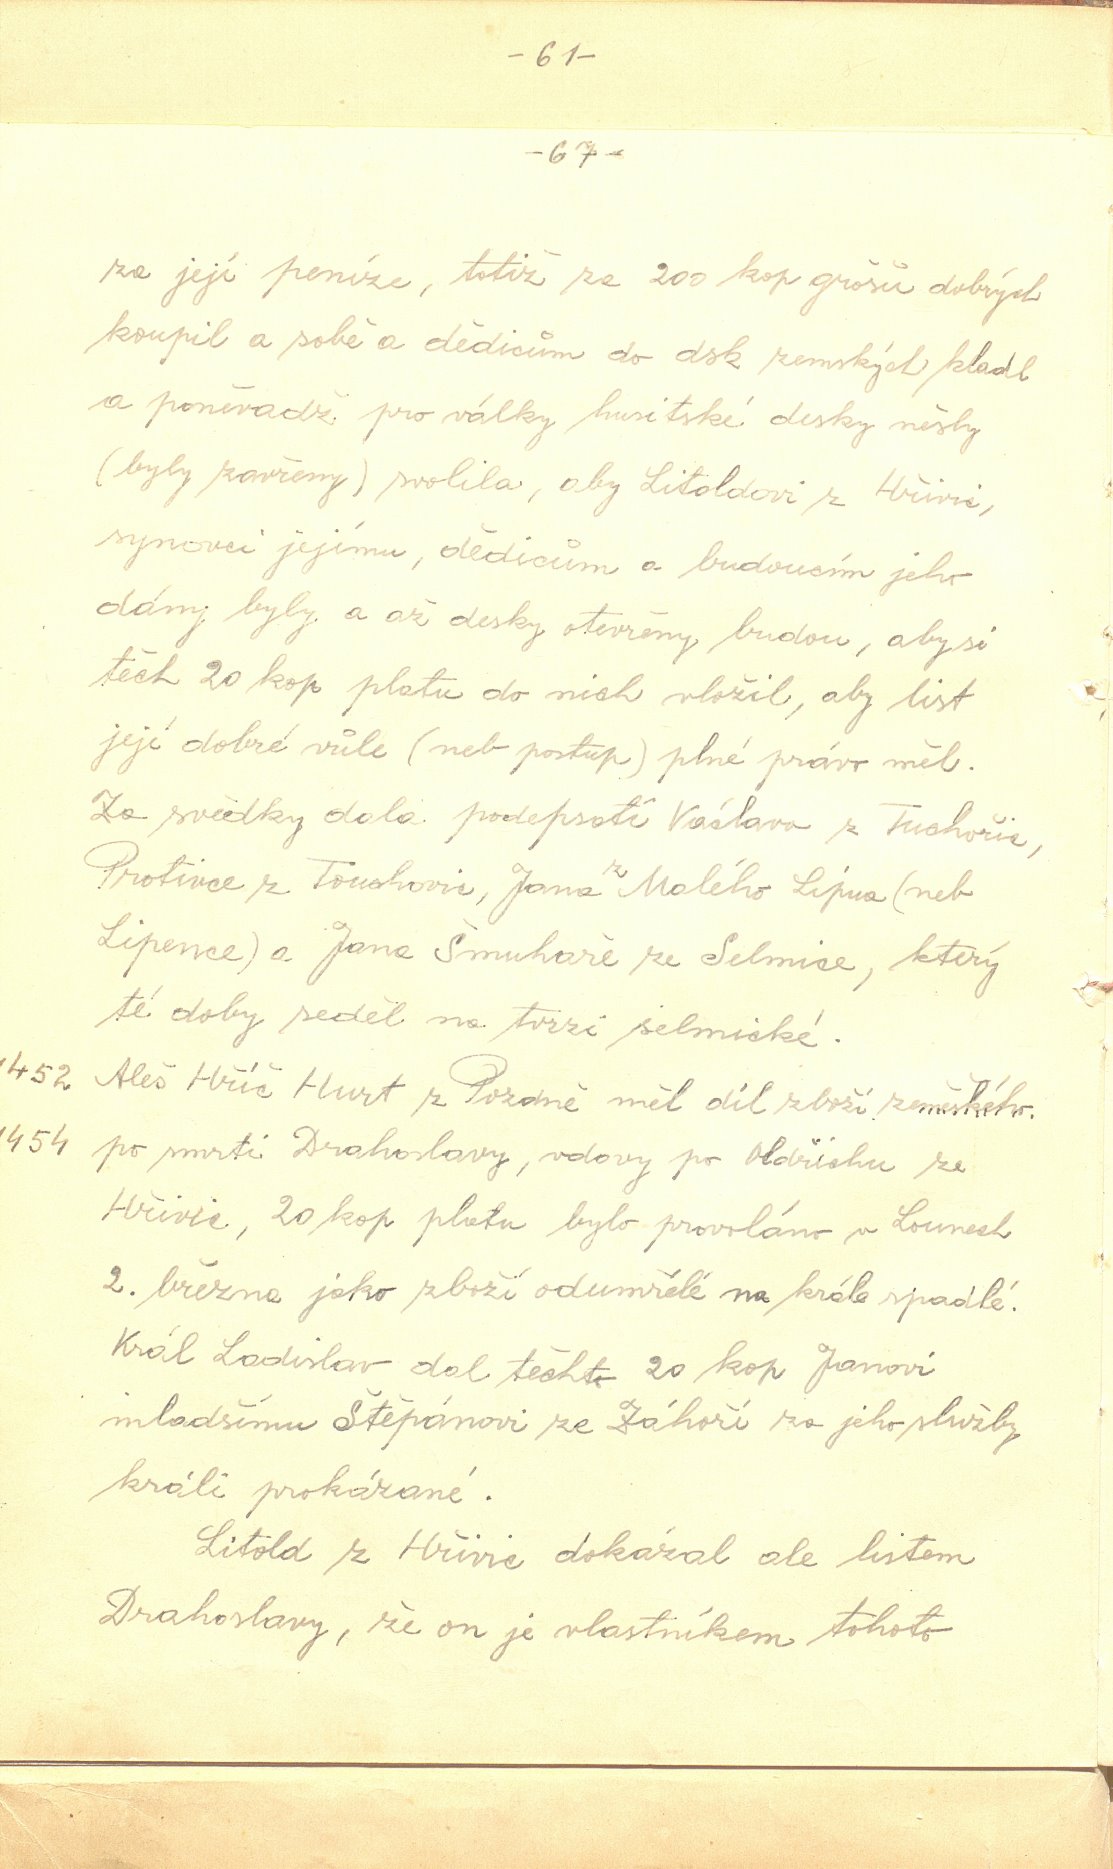 - 61 -
- 67 -
za její peníze, totiž za 200 kop grošů dobrých
koupil a sobě a dědicům do dsk zemských kladl
a poněvadž pro války husitské desky nešly
(byly zavřeny) svolila, aby Litoldovi z Hřivic,
synovci jejímu, dědicům a budoucím jeho
dány byly a až desky otevřeny budou, aby si
těch 20 kop platu do nich vložil, aby list
její dobré vůle (neb postup) plné právo měl.
Za svědky dala podepsati Václava z Tuchořic,
Protivce z Touchovic, Jana z Malého Lipna (neb
Lipence) a Jana Šmuhaře ze Selmice, který
té doby seděl na tvrzi selmické.
1452 Aleš Hříč Hurt z Pozdně měl díl zboží zeměského.
1454 po smrti Drahoslavy, vdovy po Oldřichu ze
Hřivic, 20 kop platu bylo provoláno v Lounech
2. března jako zboží odumřelé na krále spadlé.
Král Ladislav dal těchto 20 kop Janovi
mladšímu Štěpánovi ze Záhoří za jeho služby
králi prokázané.
Litold z Hřivic dokázal ale listem
Drahoslavy, že on je vlastníkem tohoto